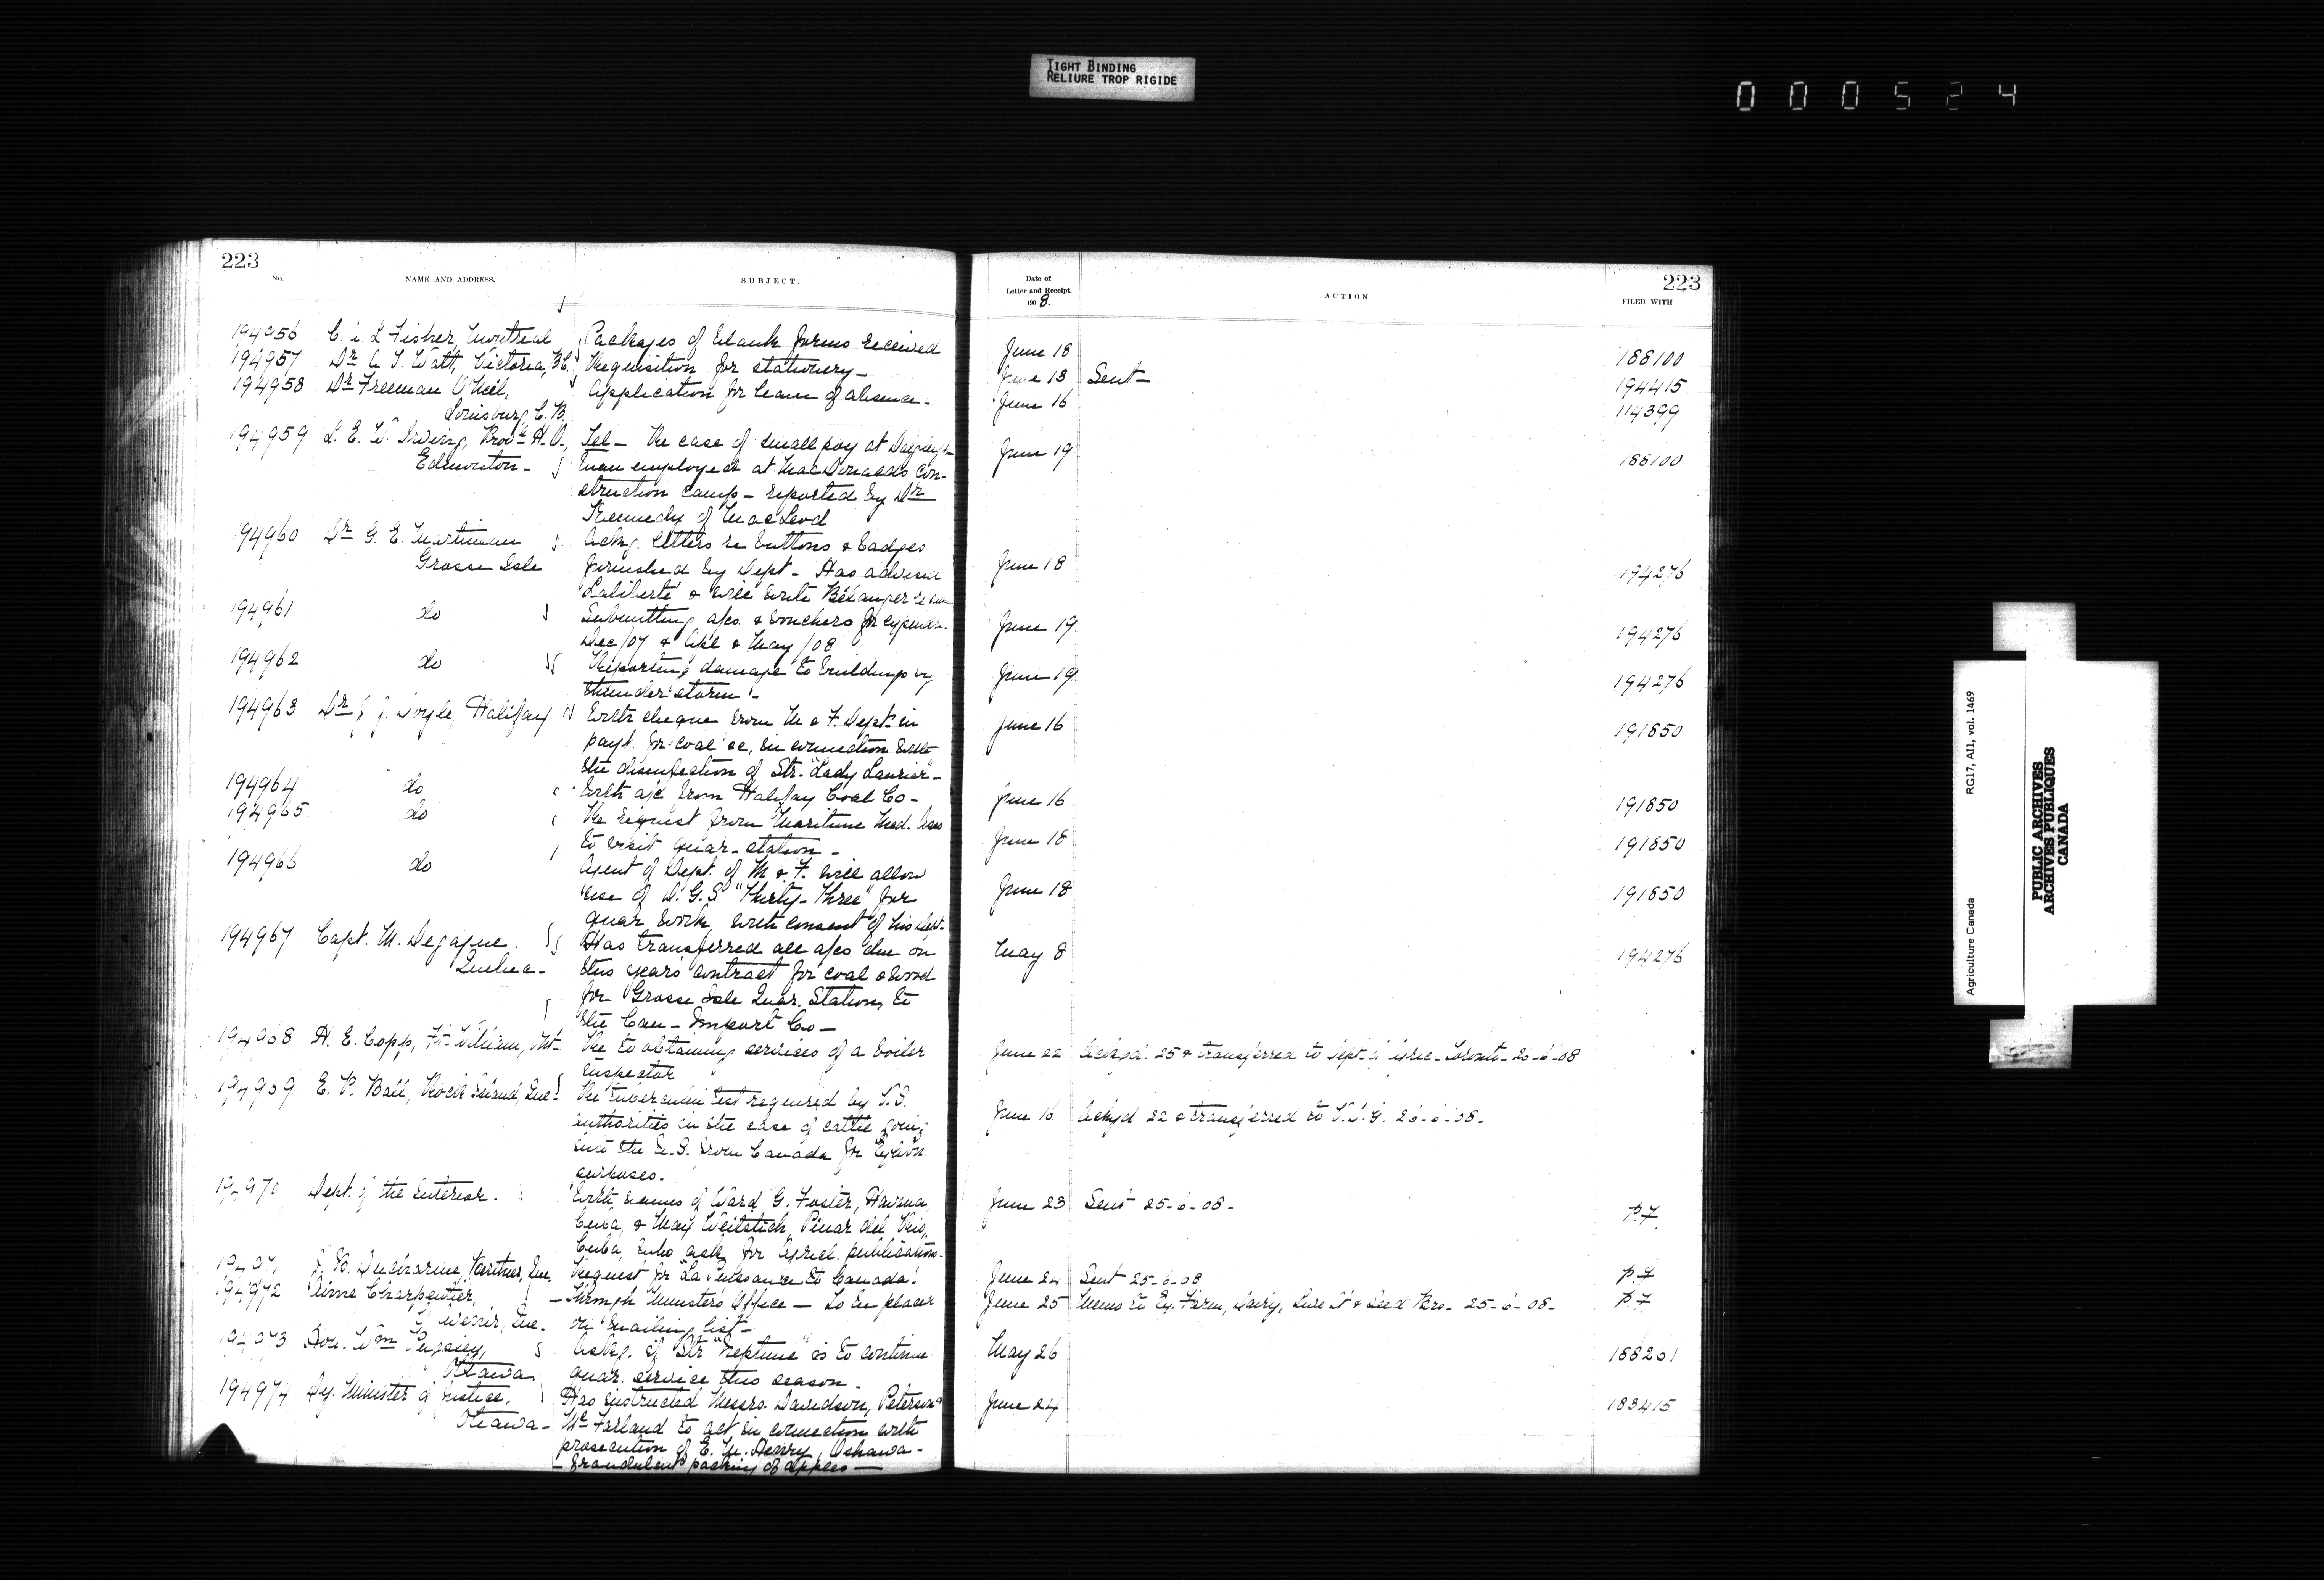 TIGHT BINDING
RELIURE TROP RIGIDE
000524
223
No. NAME AND ADDRESS. SUBJECT.
194956 C. L. Fisher, Montreal Packages of blank forms received
194957 Dr A. T. Watt, Victoria, B.C. Requisition for stationery—
194958 Dr Freeman O'Neil, Application for leave of absence—
Louisburg C. B.
194959 L. E. W. Irving, Prov. H. O., Tel— Re case of small pox at
Edmonton— man employed at MacDonalds con-
struction camp— reported by Dr
Kennedy of MacLeod
194960 Dr G. E. Martineau Ackg. letters re buttons & badges
Grosse Isle furnished by Dept— Has advised
Laliberté & will write Bélanger re
194961 do Submitting a/cs. & vouchers for expenses.
Dec/07 & Apl & May/08
194962 do Reporting damage to buildings by
thunder storm—
194963 Dr J. Doyle, Halifax With cheque from M. & F. Dept. in
payt. for coal &c, in connection with
the disinfection of Str. "Lady Laurier"—
194964 do With a/c from Halifax Coal Co—
194965 do Re request from Maritime Med. Assn
to visit quar. station—
194966 do Agent of Dept. of M. & F. will allow
use of D.G.S "Thirty-Three" for
quar work, with consent of his Dept—
194967 Capt. M. Has transferred all a/cs due on
Quebec— this years contract for coal & wood
for Grosse Isle Quar. Station, to
the Can— Import Co—
194968 H. E. Copp, Ft. William, Ont— Re to obtaining services of a boiler
inspector
194969 E. P. Ball, Rock Island, Que. Re tuberculin test required by U.S.
authorities in the case of cattle going
into the U.S. from Canada for Exh'on
purposes.
194970 Dept. of the Interior. With names of Ward G. Foster, Havana
Cuba, & May Pinar del Rio,
Cuba, who ask for Agricl. publications—
Ducharme, Que. Request for "La Puissance du Canada".
194972 Aimé Charpentier, —Through Minister's Office— To be placed
Que— on mailing list—
194973 Hon. Wm Pugsley, Askg. if Str "Neptune" is to continue
Ottawa quar. service this season—
194974 Dy. Minister of Justice, Has instructed Messrs. Davidson, Peterson &
Ottawa— McFarland to act in connection with
prosecution of E. M. Henry, Oshawa—
— fraudulent packing of apples—
223
Date of
Letter and Receipt. ACTION FILED WITH
1908.
June 18 188100
June 13 Sent— 194415
June 16 114399
June 19 188100
June 18 194276
June 19 194276
June 19 194276
June 16 191850
June 16 191850
June 18 191850
June 18 191850
May 8 194276
June 22 Ackgd. 25 & transferred to Dept. of Agric— Toronto— 26-6-08
June 16 Ackgd 22 & transferred to V.D.G. 26-6-08—
June 23 Sent 25-6-08— P.7.
June 24 Sent 25-6-08 P.7
June 25 Memo to Ex. Farm, Dairy, Live St & Seed Brs— 25-6-08— P.7
May 26 188201
June 24 183415
Agriculture Canada RG17, AI1, vol. 1469
PUBLIC ARCHIVES
ARCHIVES PUBLIQUES
CANADA